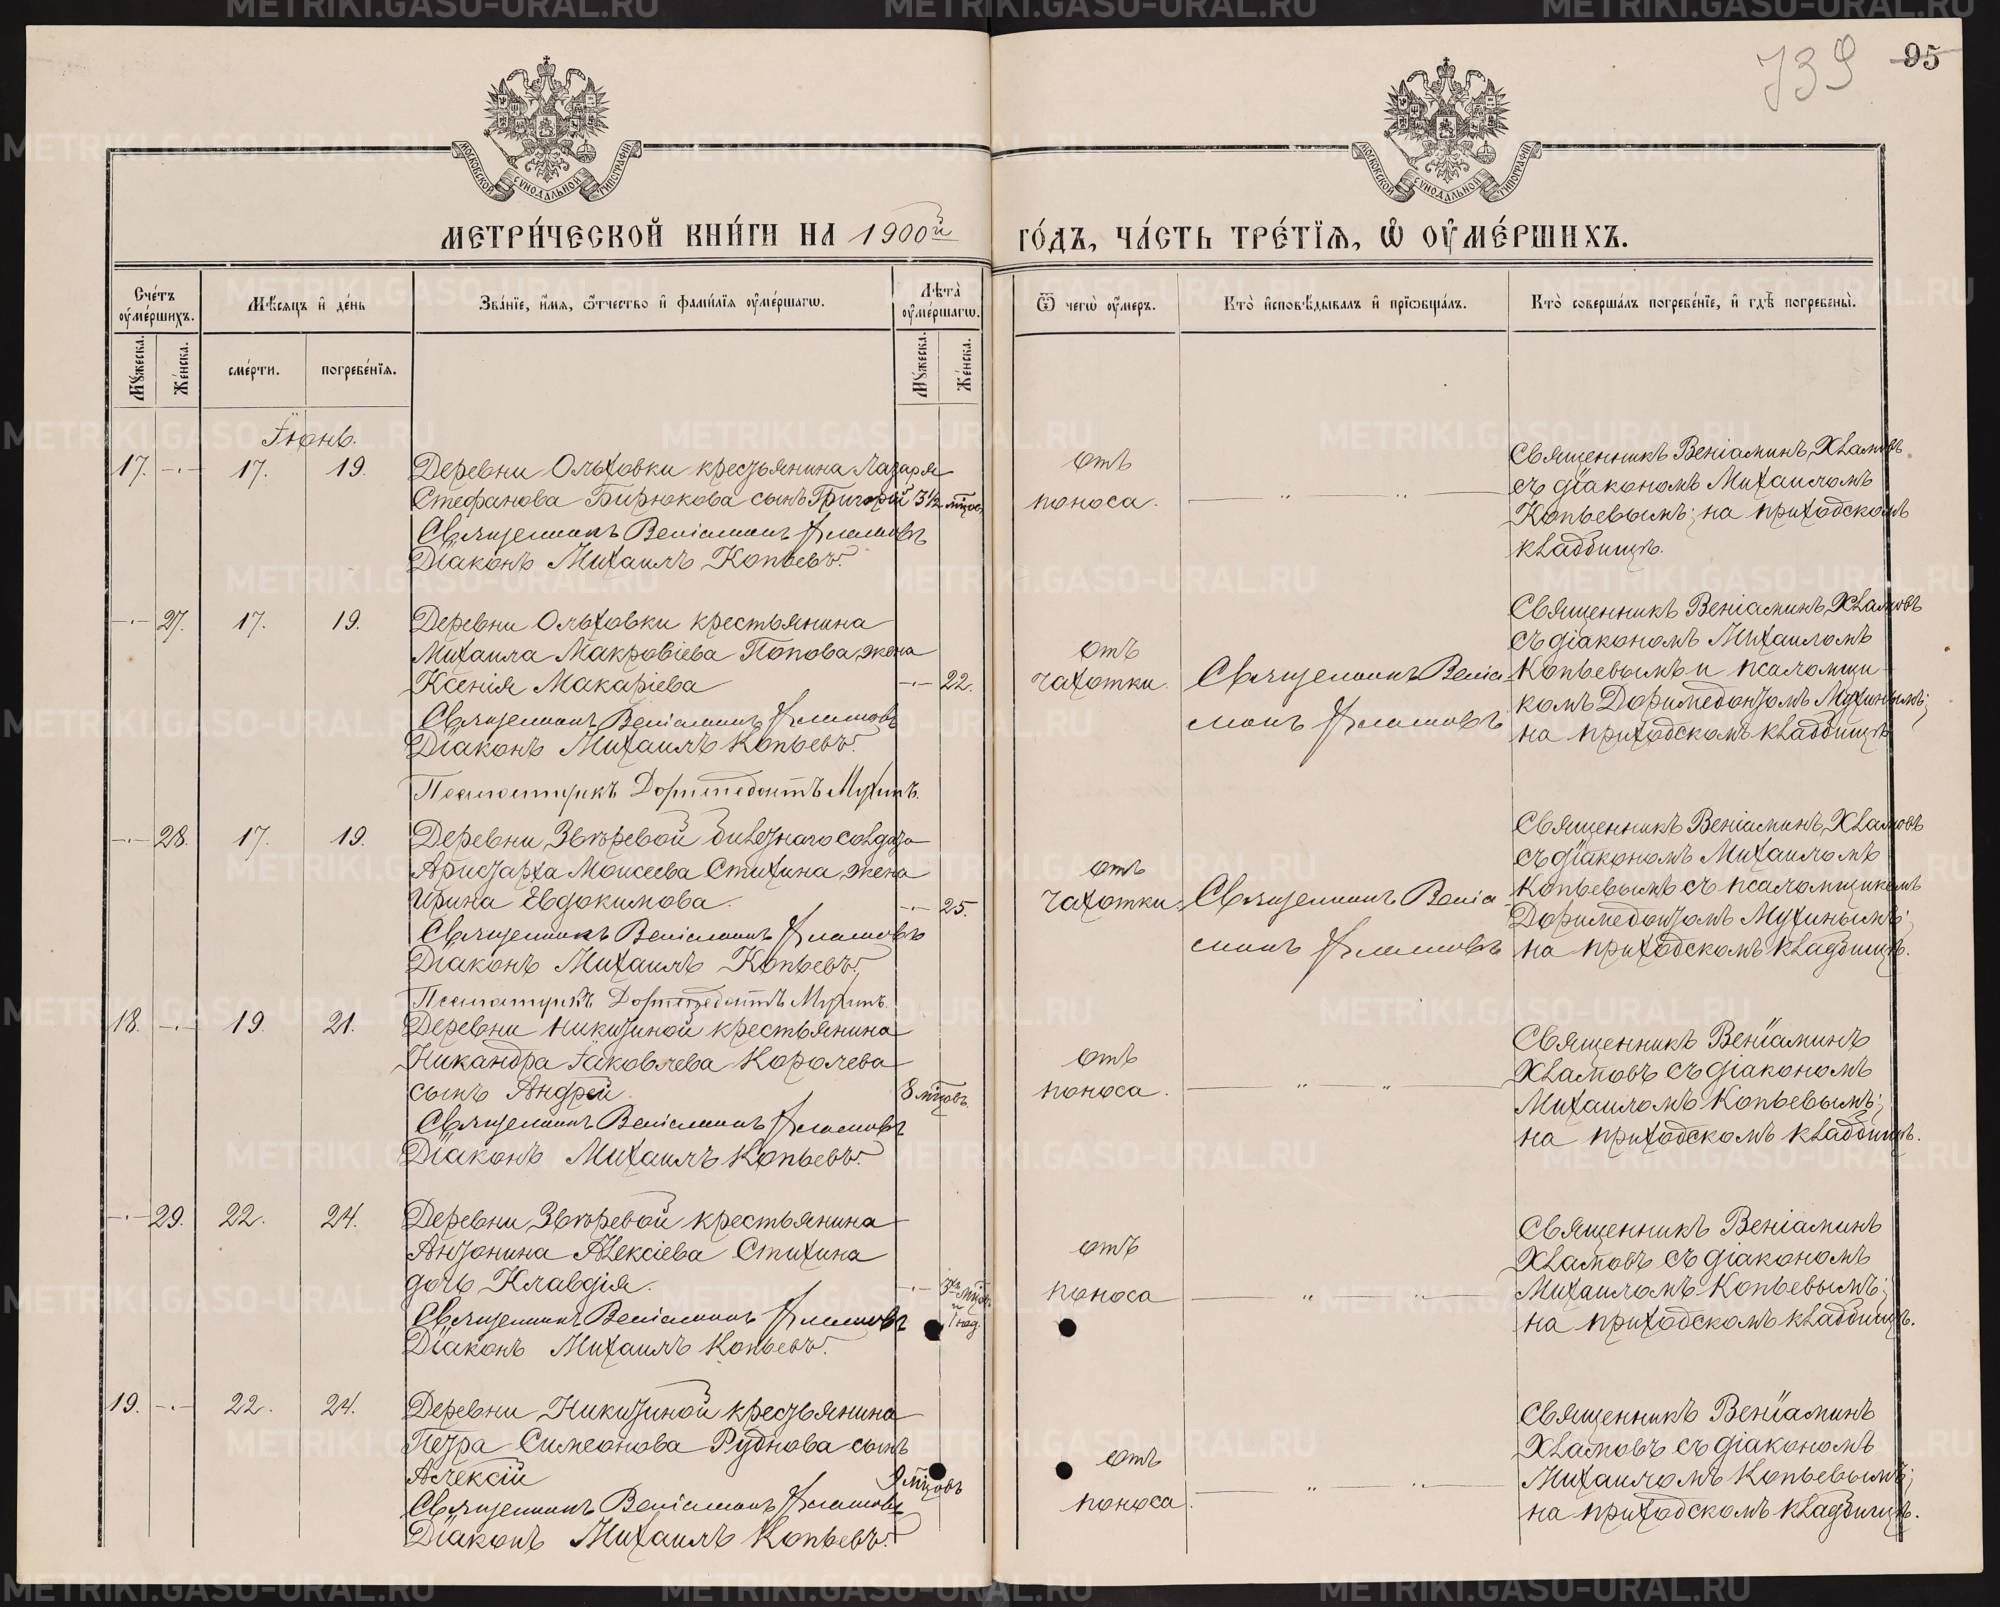 739
95
МОСКОВСКОЙ СѴНОДАЛЬНОЙ ТИПОГРАФІИ
МОСКОВСКОЙ СѴНОДАЛЬНОЙ ТИПОГРАФІИ
МЕТРИ́ЧЕСКОЙ КНИ́ГИ НА 1900й
ГО́ДЪ, ЧА́СТЬ ТРЕ́ТІѦ, Ѡ ОУМЕ́РШИХЪ.
Сче́тъ оумершихъ.
Мѣсяцъ и де́нь
Зва́ніе, и́мя, ѿчество и фами́лія оуме́ршагѡ.
Лѣта̀ оуме́ршагѡ.
Ѿ чегѡ̀ оу́меръ.
Кто̀ исповѣ́дывалъ и пріѡбща́лъ.
Кто̀ соверша́лъ погребе́ніе, и гдѣ̀ погребены̀.
Му́жеска.
Же́нска.
сме́рти.
погребе́нія.
Му́жеска.
Же́нска.
Іюнь.
17. —·— 17. 19.
Деревни Ольховки крестьянина Лазаря
Стефанова Бирюкова сынъ Григорій 3½ мѣцов
Священникъ Веніаминъ Хламовъ
Діаконъ Михаилъ Копьевъ.
отъ
поноса.
Священникъ Веніаминъ Хламовъ
съ діакономъ Михаиломъ
Копьевымъ; на приходскомъ
кладбищѣ.
—·— 27. 17. 19.
Деревни Ольховки крестьянина
Михаила Макровіева Попова жена
Ксенія Макаріева —·— 22.
Священникъ Веніаминъ Хламовъ
Діаконъ Михаилъ Копьевъ.
Псаломщикъ Доримедонтъ Мухинъ.
отъ
чахотки.
Священникъ Веніа-
минъ Хламовъ
Священникъ Веніаминъ Хламовъ
съ діакономъ Михаиломъ
Копьевымъ и псаломщи-
комъ Доримедонтомъ Мухинымъ;
на приходскомъ кладбищѣ
—·— 28. 17. 19.
Деревни Звѣревой билетнаго солдата
Аристарха Моисеева Стихина жена
Ирина Евдокимова. —·— 25.
Священникъ Веніаминъ Хламовъ
Діаконъ Михаилъ Копьевъ.
Псаломщикъ Доримедонтъ Мухинъ.
отъ
чахотки
Священникъ Веніа-
минъ Хламовъ
Священникъ Веніаминъ Хламовъ
съ діакономъ Михаиломъ
Копьевымъ съ псаломщикомъ
Доримедонтомъ Мухинымъ;
на приходскомъ кладбищѣ.
18. —·— 19. 21.
Деревни Никитиной крестьянина
Никандра Іаковлева Королева
сынъ Андрей. 8 мѣцовъ.
Священникъ Веніаминъ Хламовъ
Діаконъ Михаилъ Копьевъ.
отъ
поноса.
Священникъ Веніаминъ
Хламовъ съ діакономъ
Михаиломъ Копьевымъ;
на приходскомъ кладбищѣ.
—·— 29. 22. 24.
Деревни Звѣревой крестьянина
Антонина Алексіева Стихина
дочь Клавдія. —·— мѣцовъ
и
1 год.
Священникъ Веніаминъ Хламовъ
Діаконъ Михаилъ Копьевъ.
отъ
поноса
Священникъ Веніаминъ
Хламовъ съ діакономъ
Михаиломъ Копьевымъ;
на приходскомъ кладбищѣ.
19. —·— 22. 24.
Деревни Никитиной крестьянина
Петра Симеонова Руднова сынъ
Алексій 9 мѣцовъ
Священникъ Веніаминъ Хламовъ
Діаконъ Михаилъ Копьевъ.
отъ
поноса.
Священникъ Веніаминъ
Хламовъ съ діакономъ
Михаиломъ Копьевымъ;
на приходскомъ кладбищѣ.
METRIKI.GASO-URAL.RU